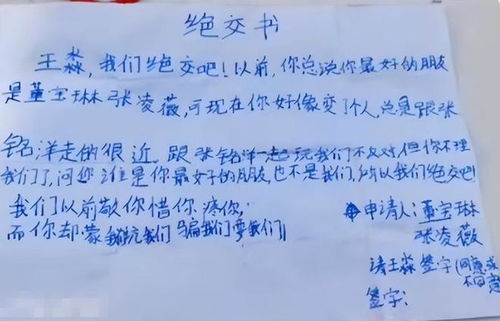 绝交书
王淼,我们绝交吧!以前,你总说你最好的朋友
是董宝琳张凌薇,可现在你好像变了个人,总是跟张
铭洋走的很近。跟张铭洋一起玩我们不反对但你不理
我们了,问您谁是你最好的朋友,也不是我们,所以我们绝交吧!
我们以前敬你惜你疼你,
而你却蒙我们坑我们骗我们耍我们!
申请人:董宝琳
张凌薇
请王淼签字(同意或
不同意
签字: